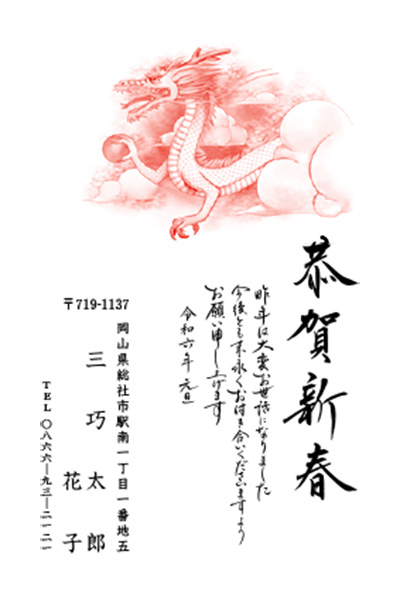 恭賀新春
昨年は大変お世話になりました
今後とも末永くお付き合いくださいますよう
お願い申し上げます
令和六年 元旦
〒719-1137
岡山県総社市駅南一丁目一番地五
三巧太郎
花子
TEL 〇八六六―九三―二一二一